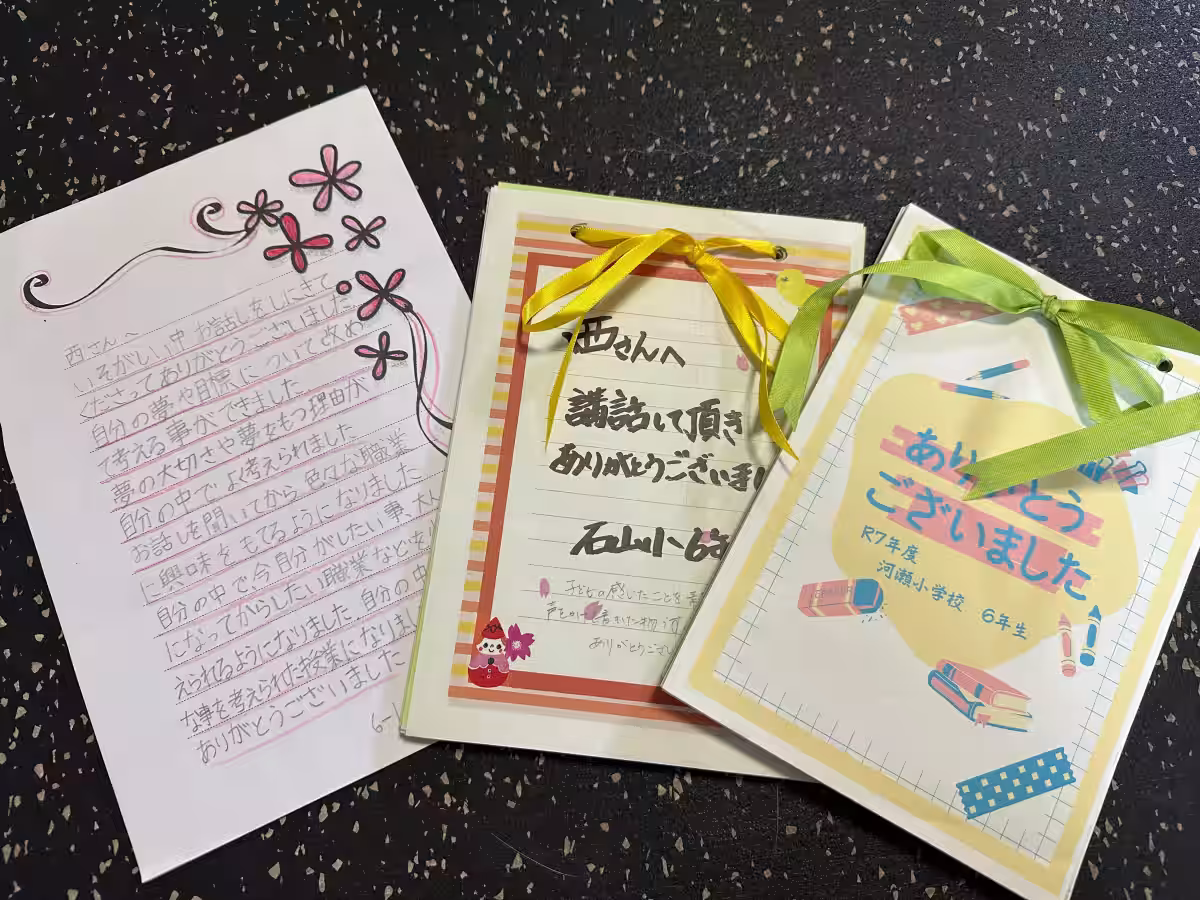 西さんへ
いそがしい中 お話しをしにきて
くださってありがとうございました
自分の夢や目標について改め
て考える事ができました
夢の大切さや夢をもつ理由が
自分の中でよく考えられました
お話しを聞いてから色々な職業
に興味をもてるようになりました
自分の中で今自分がしたい事、大人
になってからしたい職業などを
えられるようになりました 自分の中
な事を考えられた授業になりまし
ありがとうございました
6-1
西さんへ
講話して頂き
ありがとうございまし
石山小 6年
子どもの感じたことを
ありがとうござい
ありがとう
ございました
R7年度
河瀬小学校 6年生